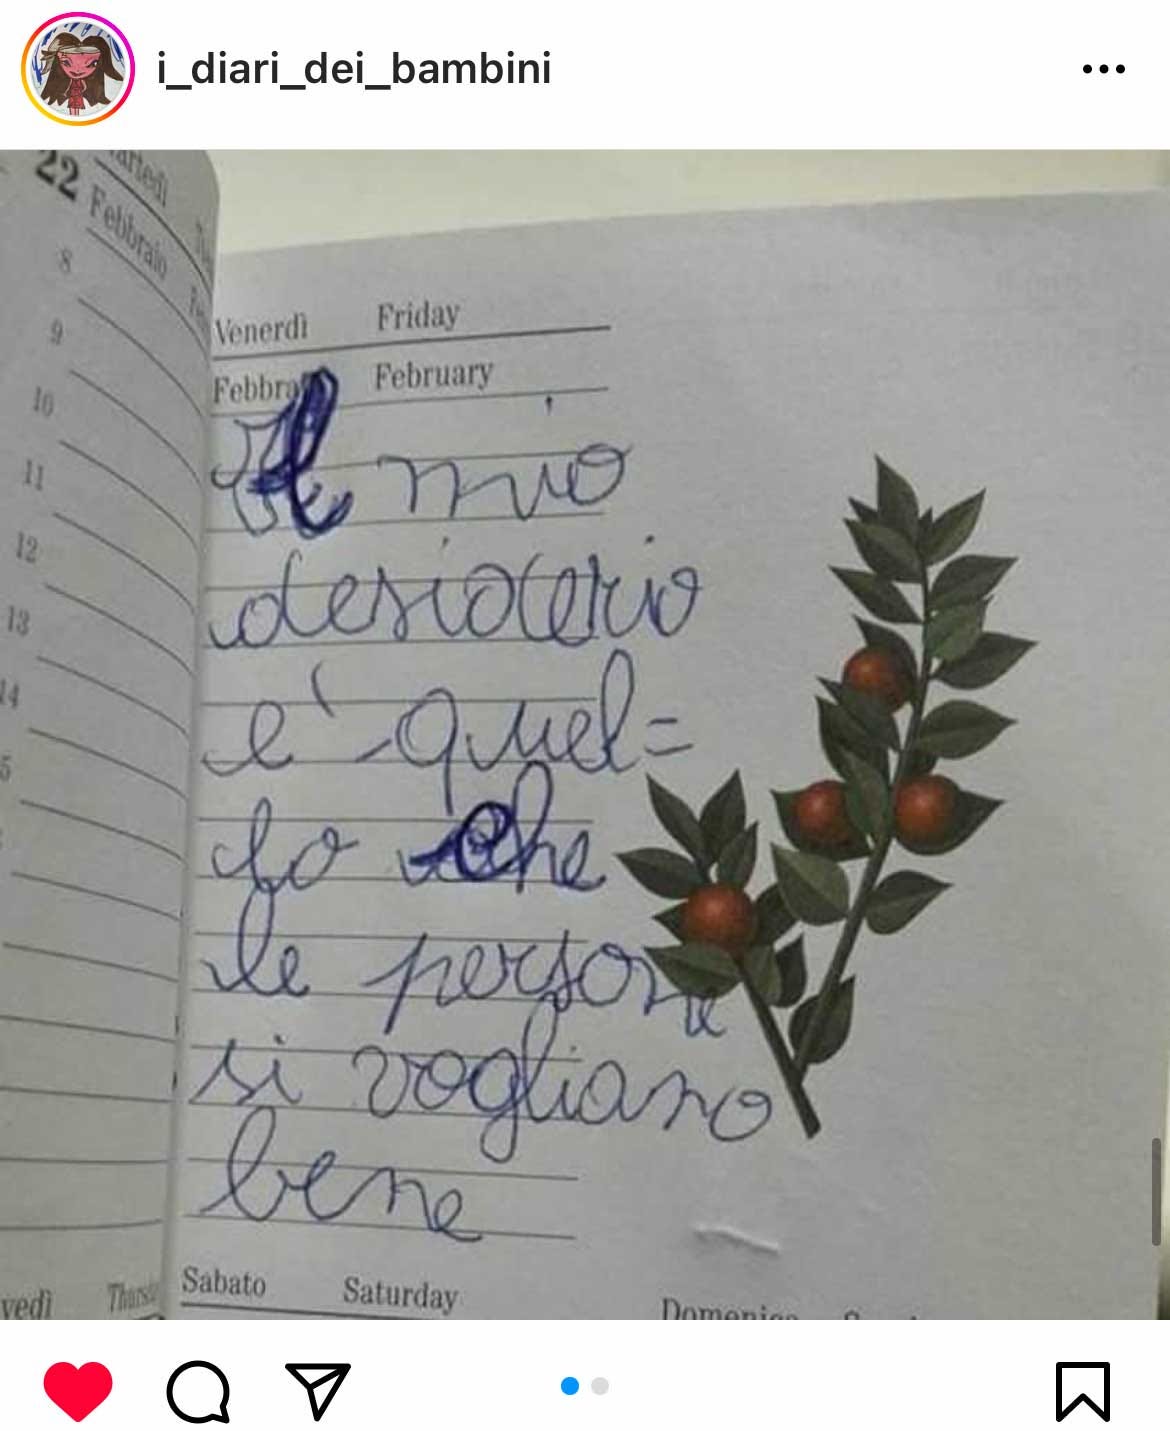 i_diari_dei_bambini
22
Febbraio
8
9
10
11
12
13
14
5
Venerdì Friday
February
Il mio
desiderio
è quel=
lo che
le persone
si vogliano
bene
vedì
Sabato Saturday